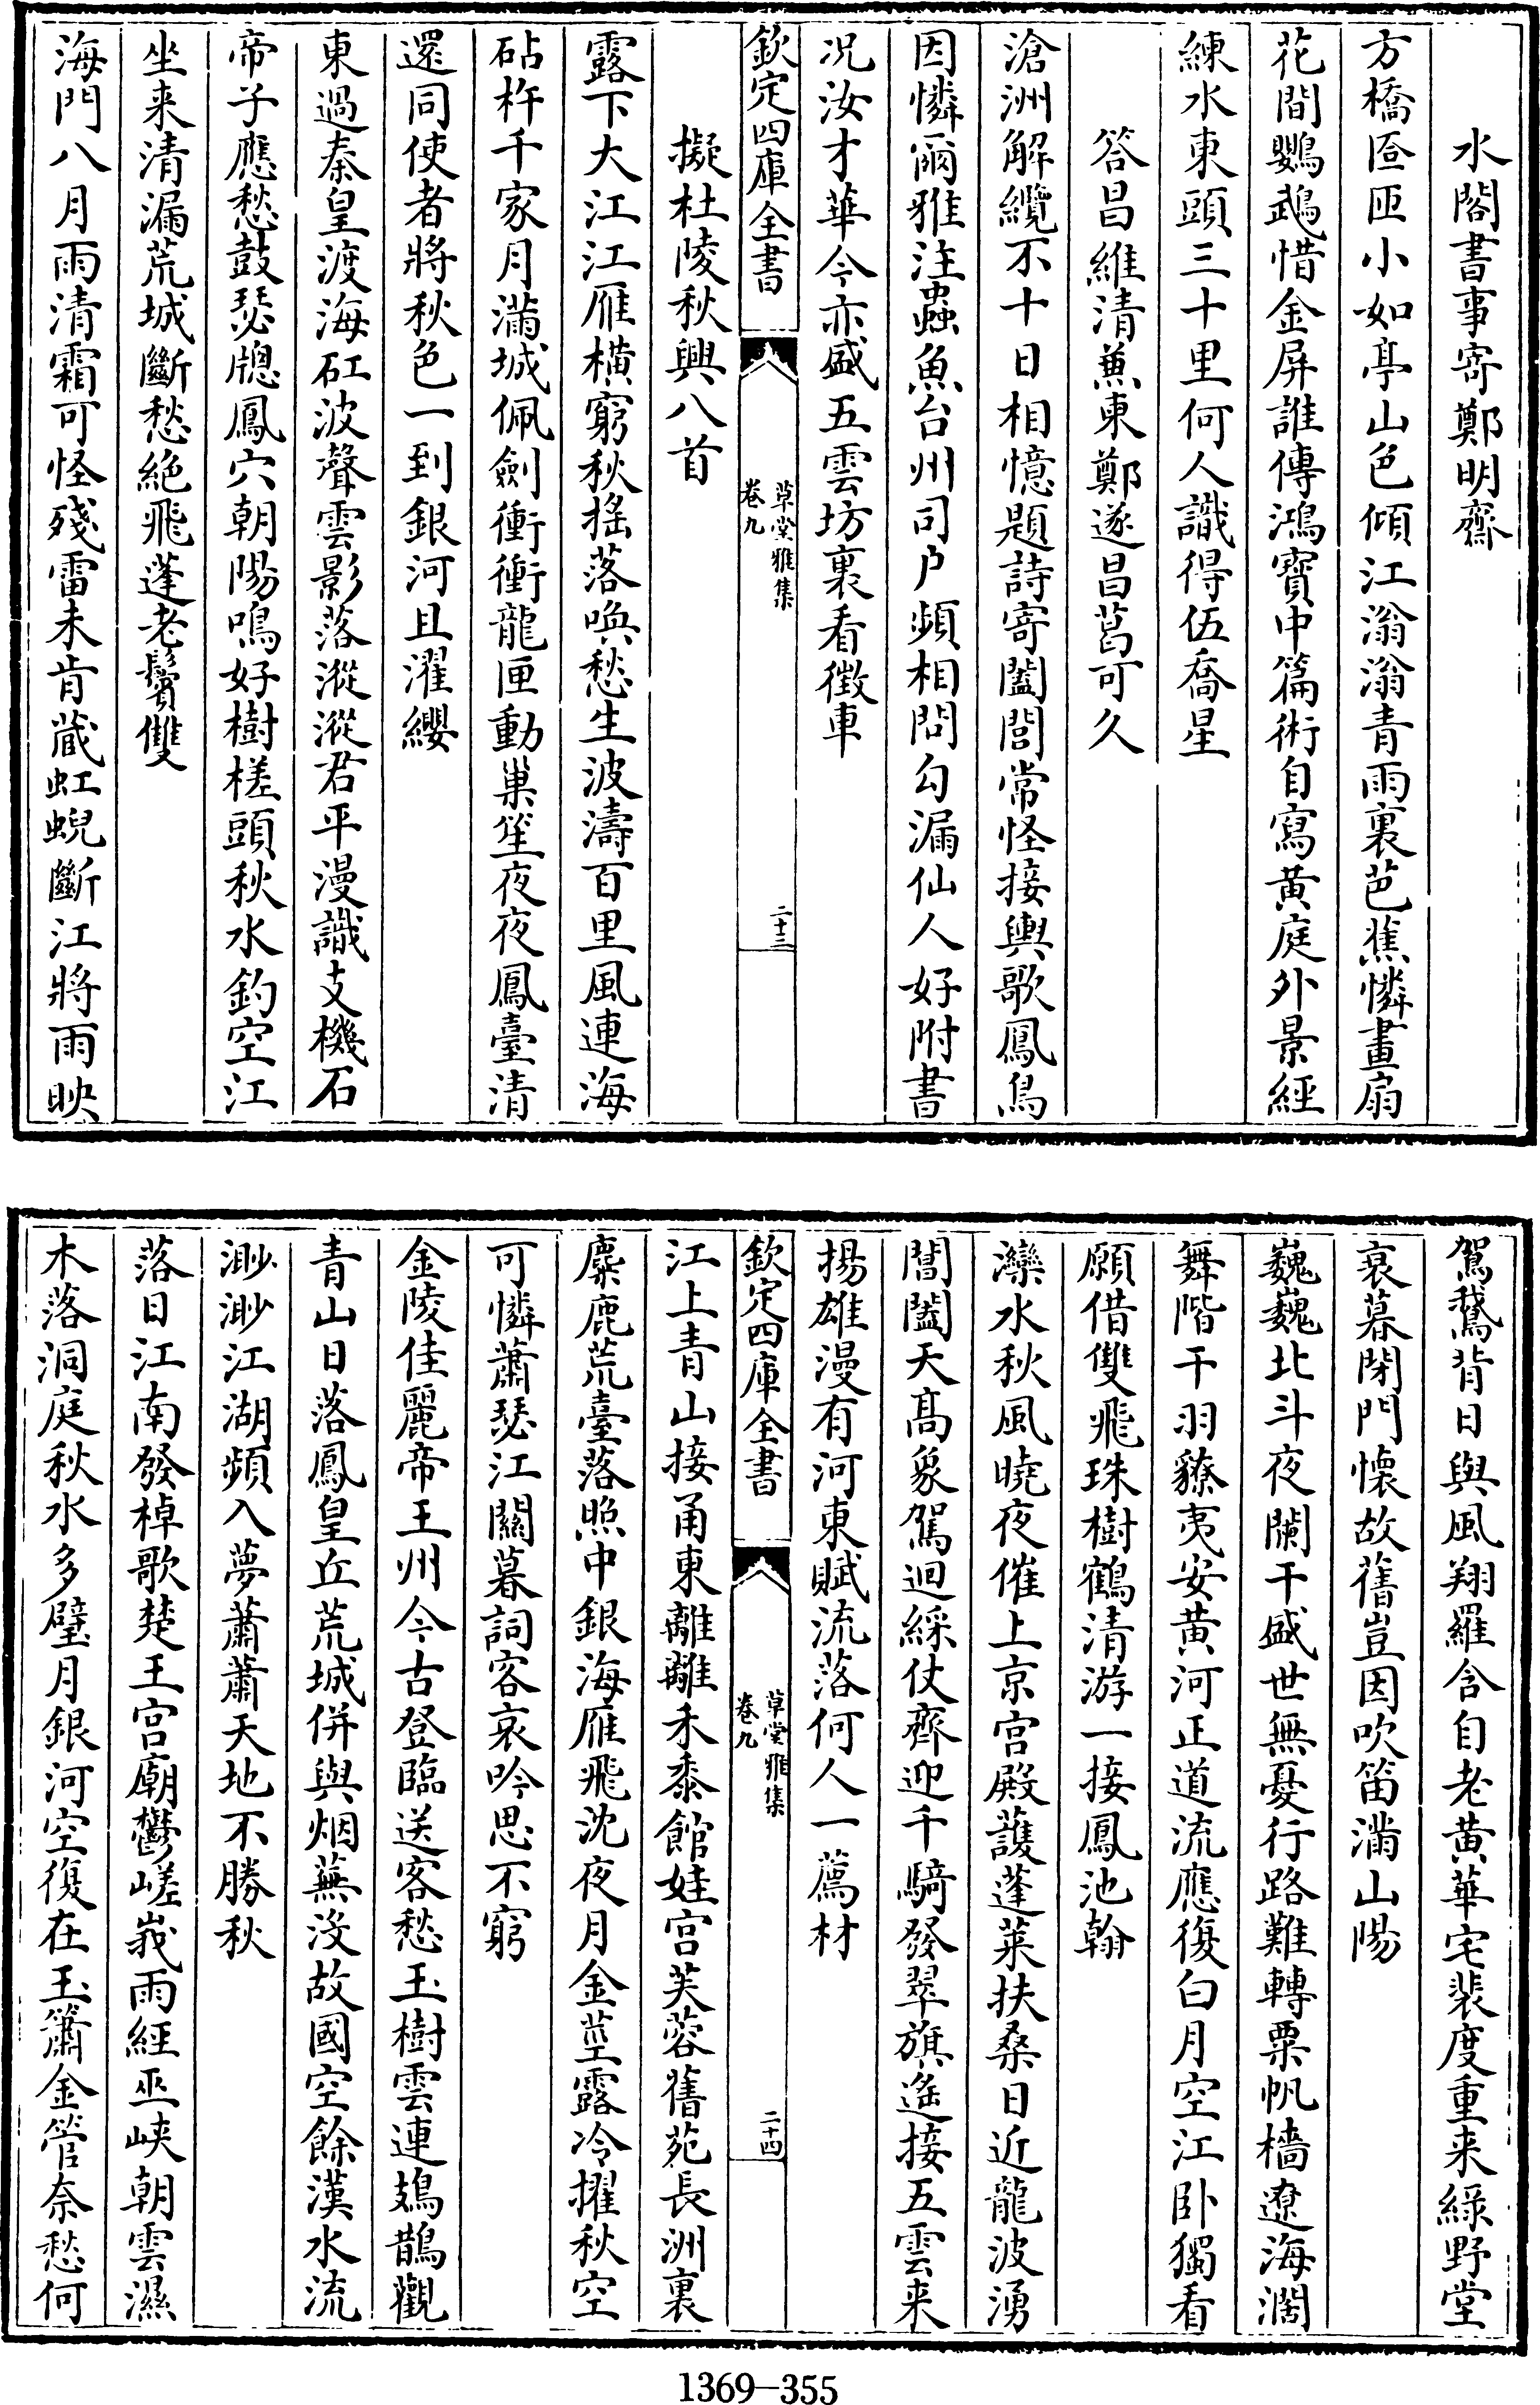 水閣書事寄鄭明齋
方橋匼匝小如亭山色傾江滃滃青雨裏芭蕉憐畫扇
花間鸚鵡惜金屏誰傳鴻寶中篇術自寫黃庭外景經
練水東頭三十里何人識得伍喬星
答昌維清兼東鄭遂昌葛可久
滄洲解纜不十日相憶題詩寄闔閭常怪接輿歌鳳鳥
因憐爾雅注蟲魚台州司户頻相問勾漏仙人好附書
况汝才華今亦盛五雲坊裏看徵車
欽定四庫全書
草堂雅集
卷九
二十三
擬杜陵秋興八首
露下大江江雁橫窮秋搖落喚愁生波濤百里風連海
砧杵千家月滿城佩劍衝衝龍匣動巢笙夜夜鳳臺清
還同使者將秋色一到銀河且濯纓
東過秦皇渡海矼波聲雲影落漎漎君平漫識支機石
帝子應愁鼓瑟牕鳳穴朝陽鳴好樹槎頭秋水釣空江
坐来清漏荒城斷愁絕飛蓬老鬢雙
海門八月雨清霜可怪殘雷未肯蔵虹蜺斷江將雨映
駕鵞背日與風翔羅含自老黃華宅裴度重来綠野堂
哀暮閉門懐故舊豈因吹笛滿山陽
巍巍北斗夜闌干盛世無憂行路難轉粟帆檣遼海濶
舞階干羽豩夷安黃河正道流應復白月空江卧獨看
願借雙飛珠樹鶴清游一接鳳池翰
灤水秋風曉夜催上京宮殿護蓬萊扶桑日近龍波湧
閶闔天高象駕迴綵仗齊迎千騎發翠旗遙接五雲来
揚雄漫有河東賦流落何人一薦材
欽定四庫全書
草堂雅集
卷九
二十四
江上青山接甬東離離禾黍館娃宮芙蓉舊苑長洲裏
麋鹿荒臺落照中銀海雁飛沈夜月金莖露冷擢秋空
可憐蕭瑟江關暮詞客哀吟思不窮
金陵佳麗帝王州今古登臨送客愁玉樹雲連鳷鵲觀
青山日落鳳皇丘荒城併與烟蕪沒故國空餘漢水流
渺渺江湖頻入夢蕭蕭天地不勝秋
落日江南發棹歌楚王宮廟鬱嵯峩雨經巫峽朝雲濕
木落洞庭秋水多璧月銀河空復在玉簫金管奈愁何
1369-355